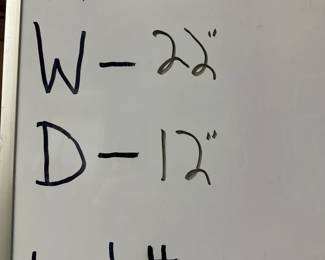 W - 22"
D - 12"